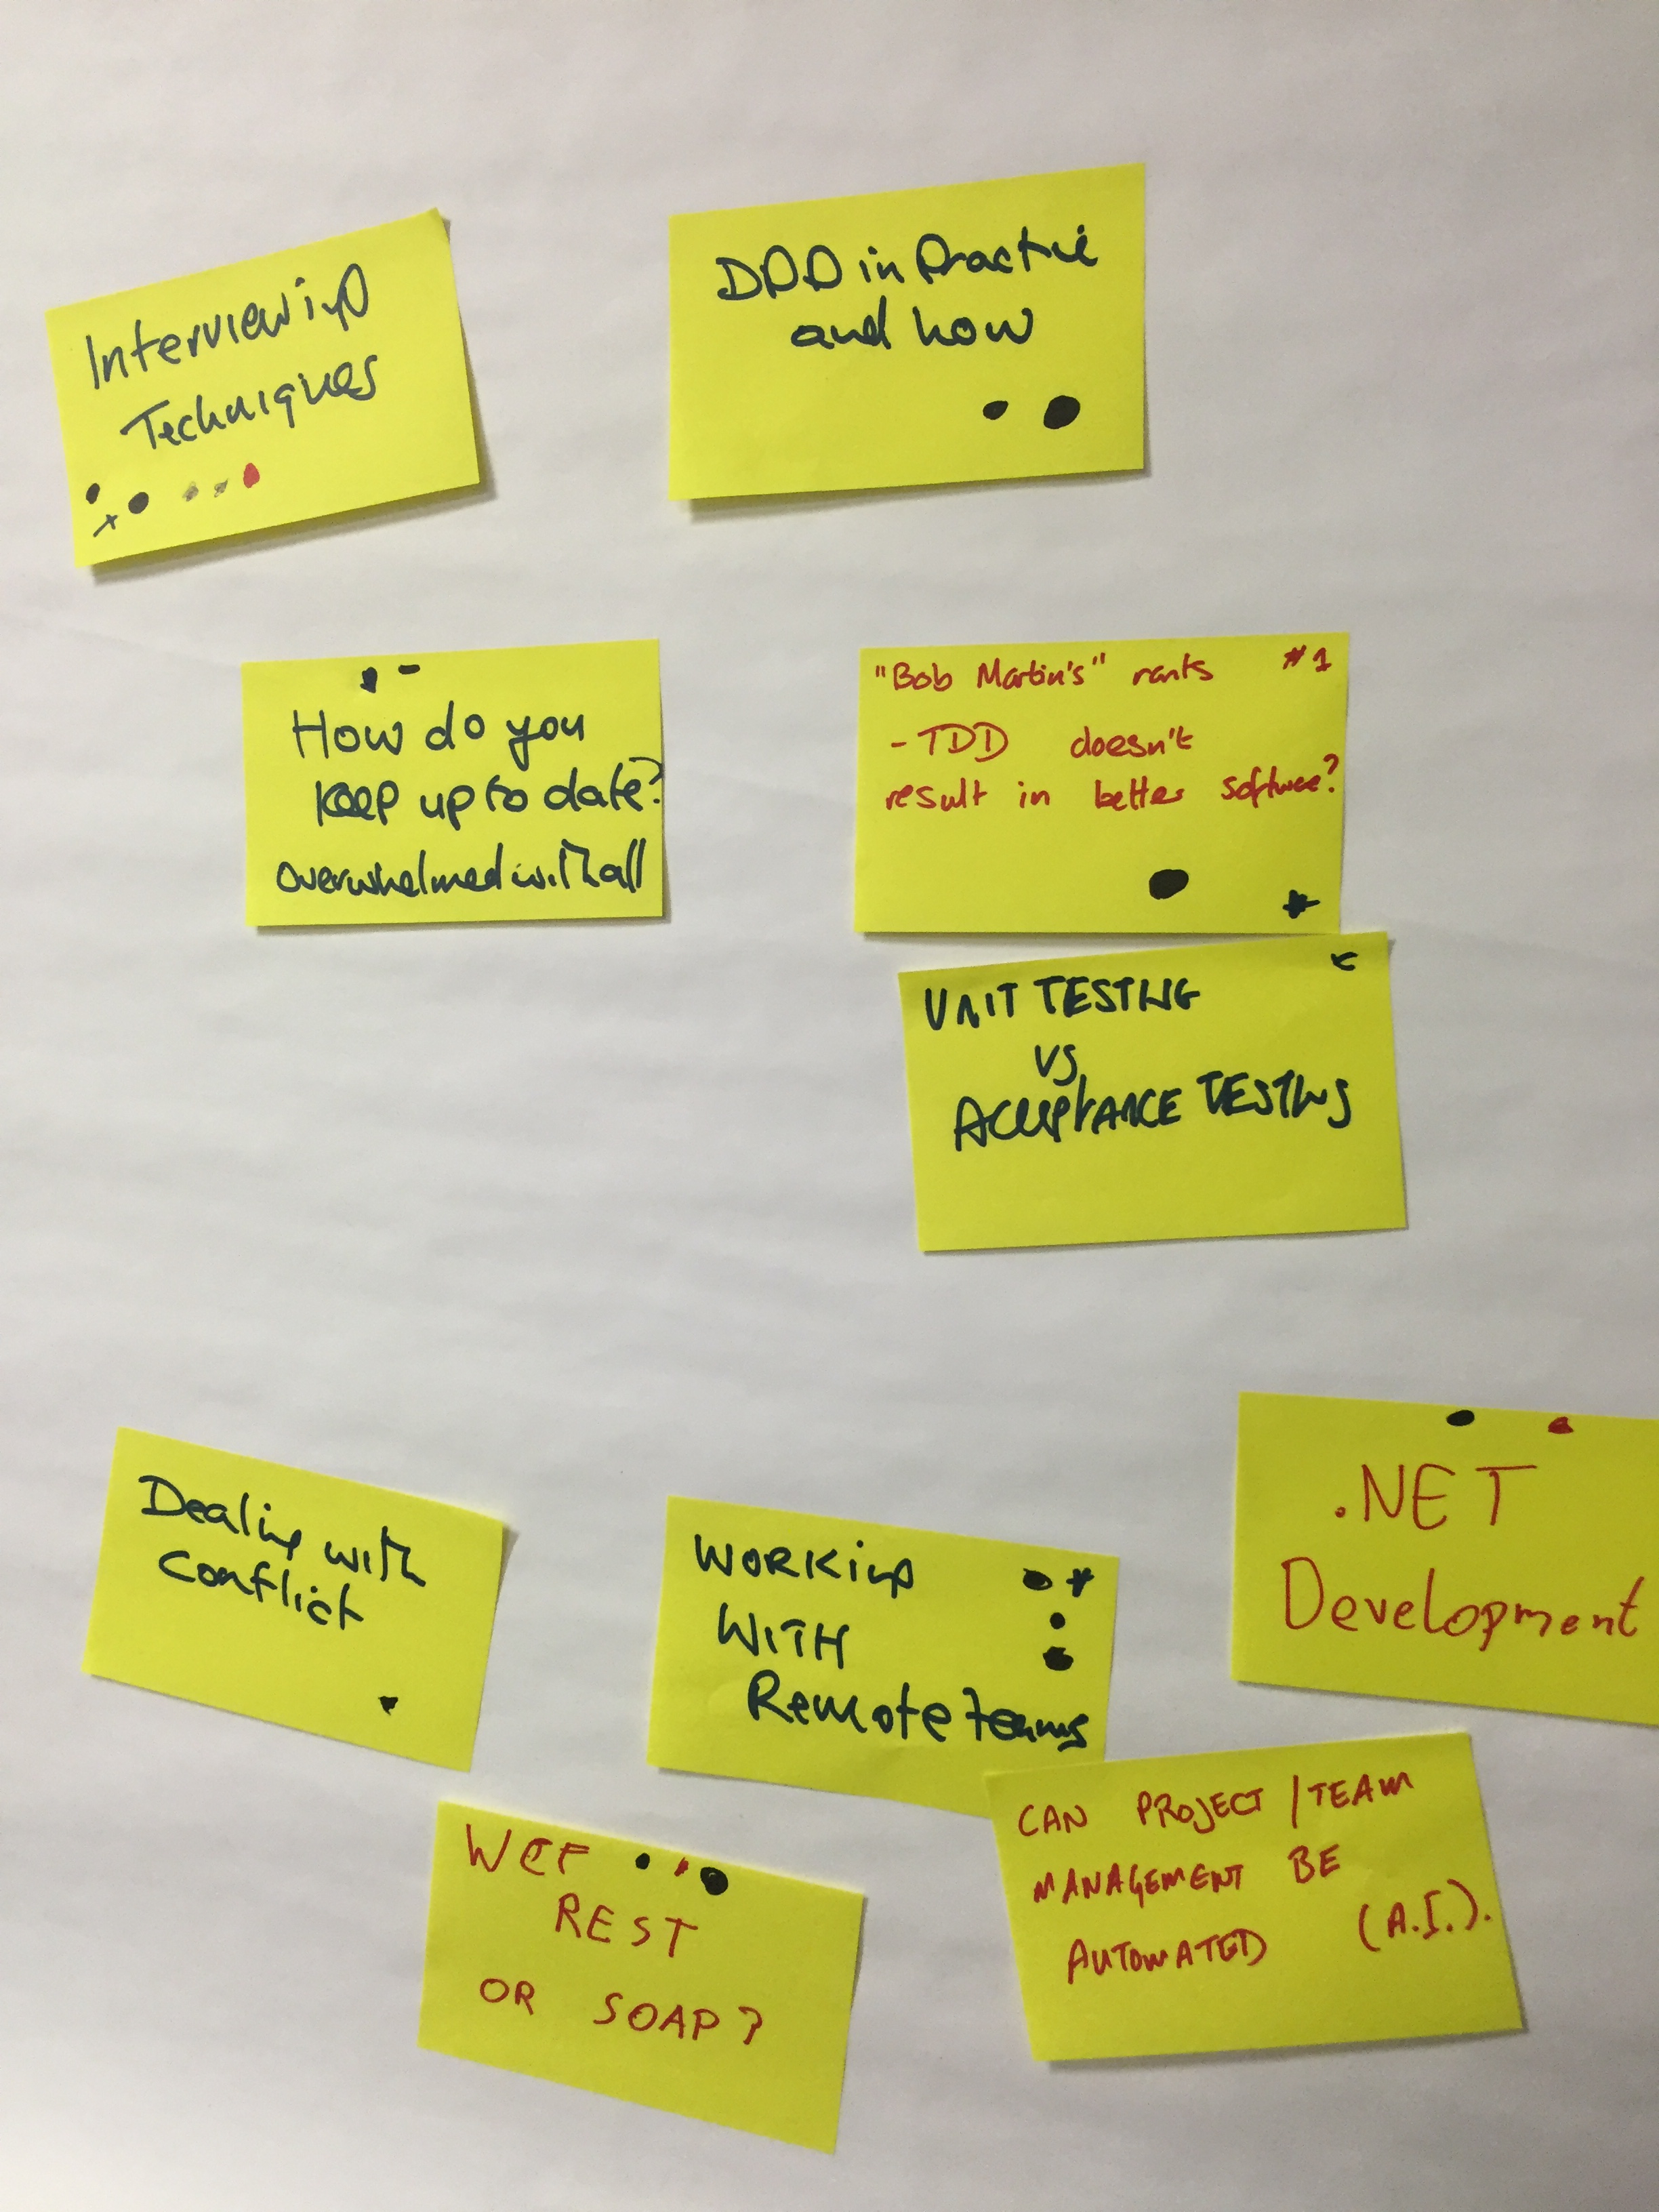 Interviewing
Techniques
DDD in Practice
and how
How do you
keep up to date?
overwhelmed with all
"Bob Martin's" rants #1
- TDD doesn't
result in better software?
UNIT TESTING
VS
ACCEPTANCE TESTING
Dealing with
conflict
WORKING
WITH
Remote teams
.NET
Development
WCF
REST
OR SOAP?
CAN PROJECT / TEAM
MANAGEMENT BE
AUTOMATED (A.I.).